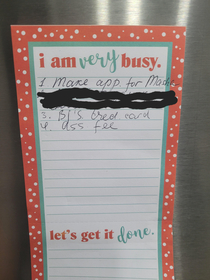 i am very busy.
1. Make app for
3. BJ'S cred card
4. ass fee
let's get it done.